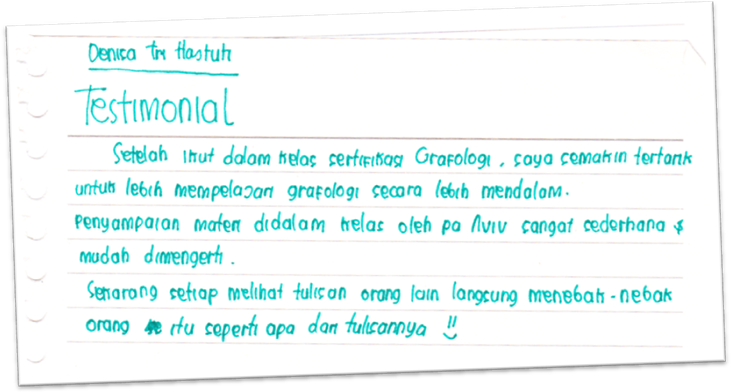 Denisa Tri Hastuti
Testimonial
Setelah ikut dalam kelas sertifikasi Grafologi, saya semakin tertarik
untuk lebih mempelajari grafologi secara lebih mendalam.
Penyampaian materi didalam kelas oleh pa Aviv sangat sederhana &
mudah dimengerti.
Sekarang setiap melihat tulisan orang lain langsung menebak-nebak
orang itu seperti apa dari tulisannya !!